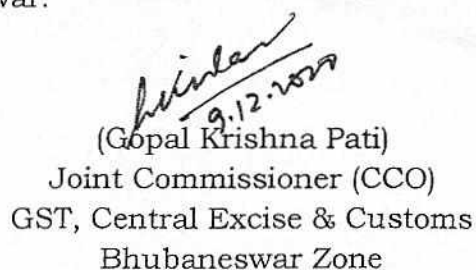 9.12.2020
(Gopal Krishna Pati)
Joint Commissioner (CCO)
GST, Central Excise & Customs
Bhubaneswar Zone